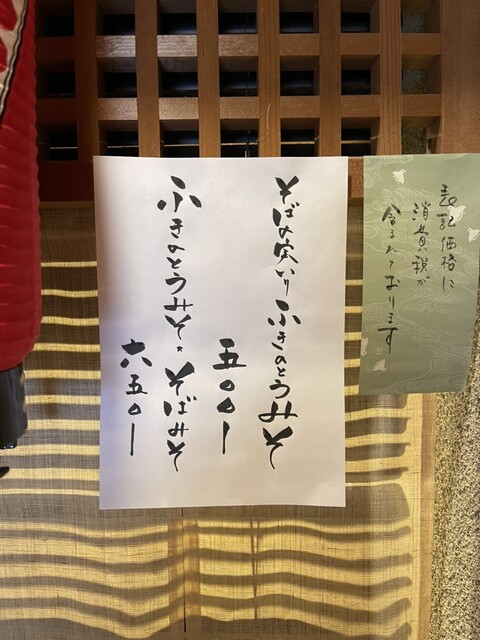 表記価格に
消費税が
含まれております
そばの実いりふきのとうみそ
五〇〇ー
ふきのとうみそ。そばみそ
六五〇ー